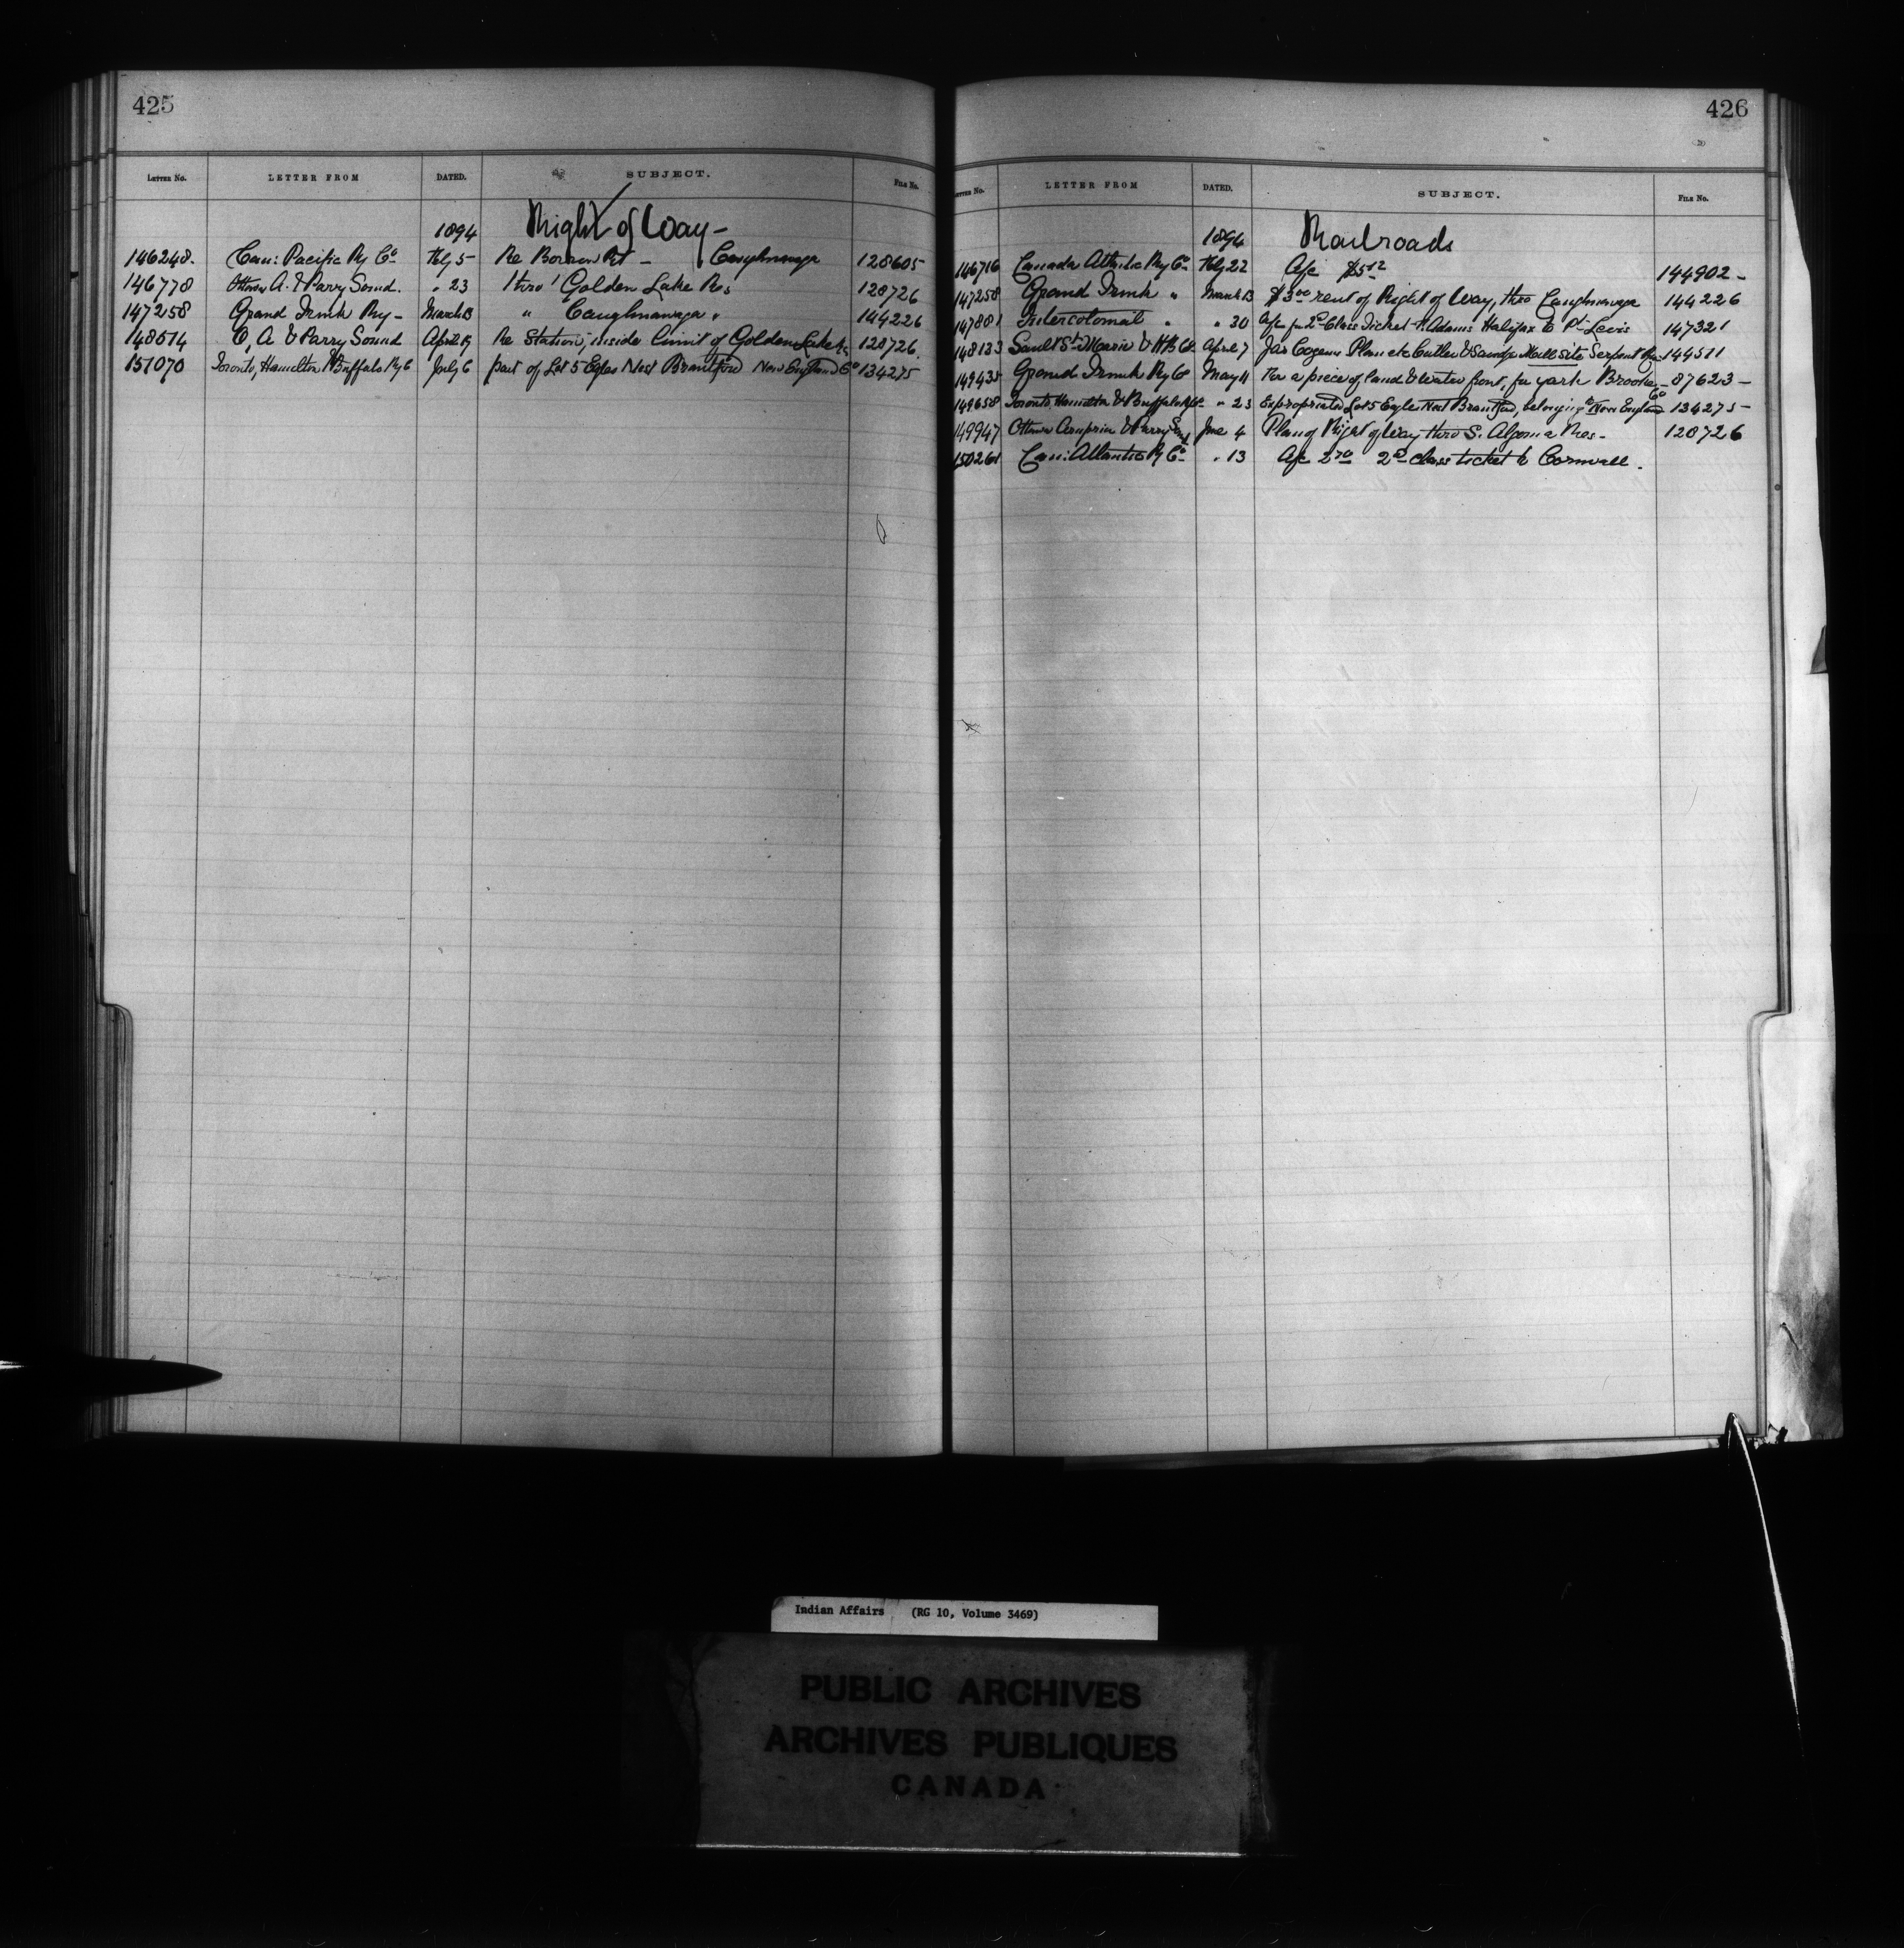 425
LETTER No. LETTER FROM DATED. SUBJECT. FILE No.
1894 Right of Way -
146248. Can: Pacific Ry Co Feby 5 Re Borrow Pit - Caughnawaga 128605
146778 Ottawa A. & Parry Sound. " 23 thro' Golden Lake Res 128726
147258 Grand Trunk Ry - March 13 " Caughnawaga " 144226
148514 O, A & Parry Sound April 19 Re Station, inside limit of Golden Lake Res 128726.
151070 Toronto, Hamilton & Buffalo Ry Co July 6 part of Lot 5 Egles Nest Brantford New England Co 134275
426
LETTER No. LETTER FROM DATED. SUBJECT. FILE No.
1894 Railroads
146716 Canada Atlantic Ry Co Feby 22 A/c $5.12 144902 -
147258 Grand Trunk " March 13 $3.00 rent of Right of Way, thro Caughnawaga 144226
147881 Intercolonial " " 30 A/c for 2d Class Ticket P. Adams Halifax to Pt Levis 147321
148133 Sault Ste Marie & H B Co April 7 Jas Cozens Plan etc Cutler & Savage Mill Site Serpent R. 144511
149435 Grand Trunk Ry Co May 11 For a piece of land & water front, for yark 87623 -
149658 Toronto, Hamilton & Buffalo Ry Co " 23 Expropriated Lot 5 Egles Nest Brantford, belonging to New England Co 134275 -
149947 Ottawa Arnprior & Parry Snd June 4 Plan of Right of Way thro S. Algoma Res - 128726
150261 Can: Atlantic Ry Co " 13 A/c 2.70 2d class ticket to Cornwall.
Indian Affairs (RG 10, Volume 3469)
PUBLIC ARCHIVES
ARCHIVES PUBLIQUES
CANADA